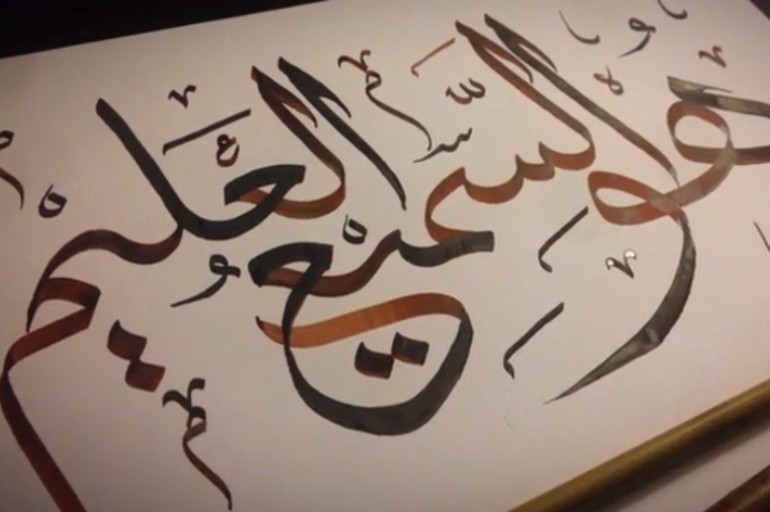 هو السَّمِيعُ العَلِيم